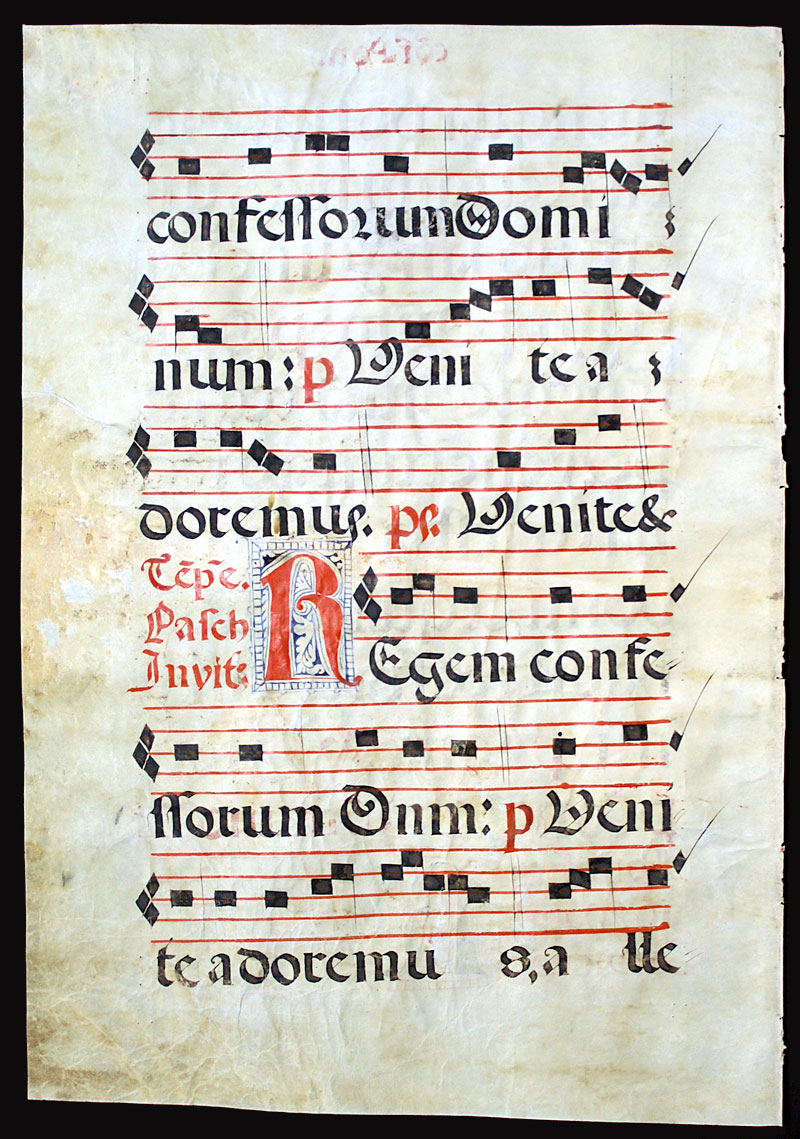 confessorum Domi
num: p Veni te a
doremus. ps. Venite &
Tēpe.
Pasch
Invit:
REgem confe-
ssorum Dnm: p Veni
te adoremu s, a lle